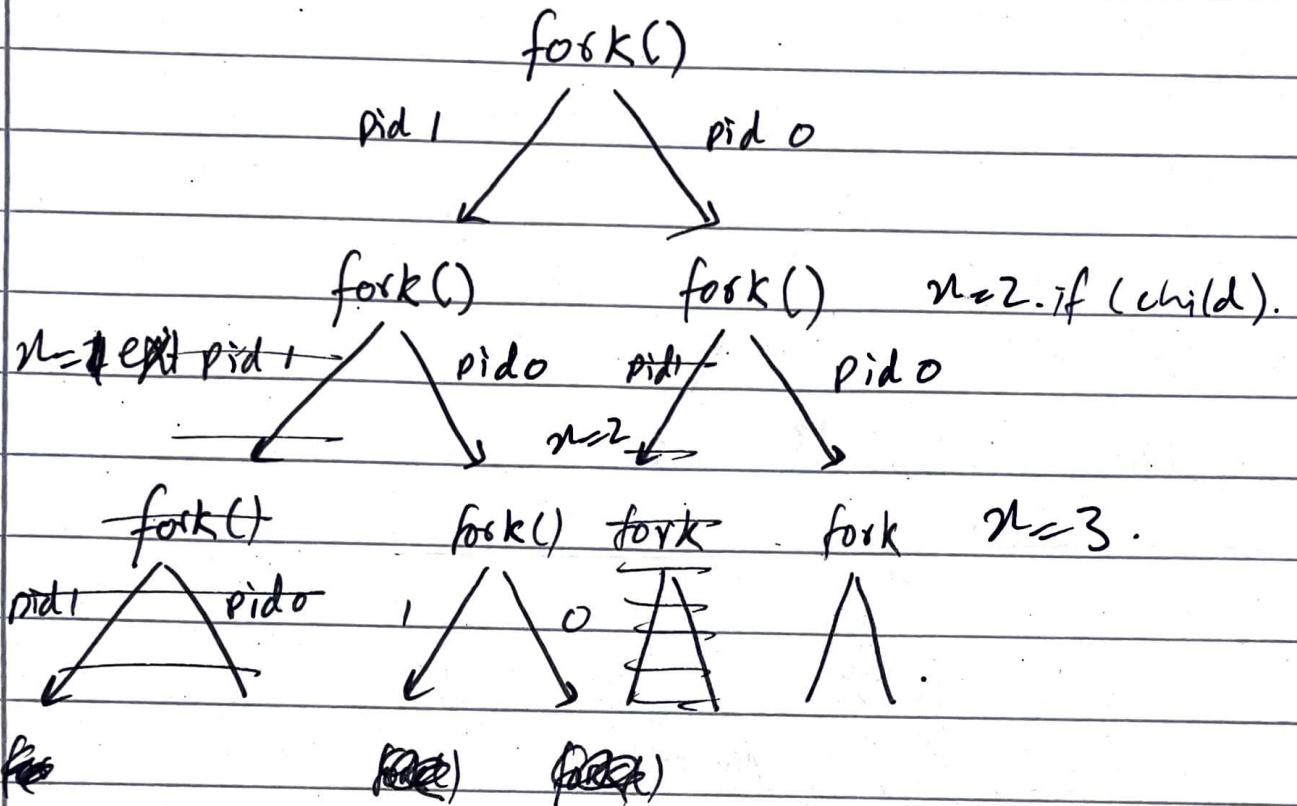 fork()
pid 1 pid 0
fork() fork() x=2. if (child).
x=1 exit pid 1 pid 0 pid1 pid 0
x=2
fork() fork() fork fork x=3.
pid1 pid0 1 0